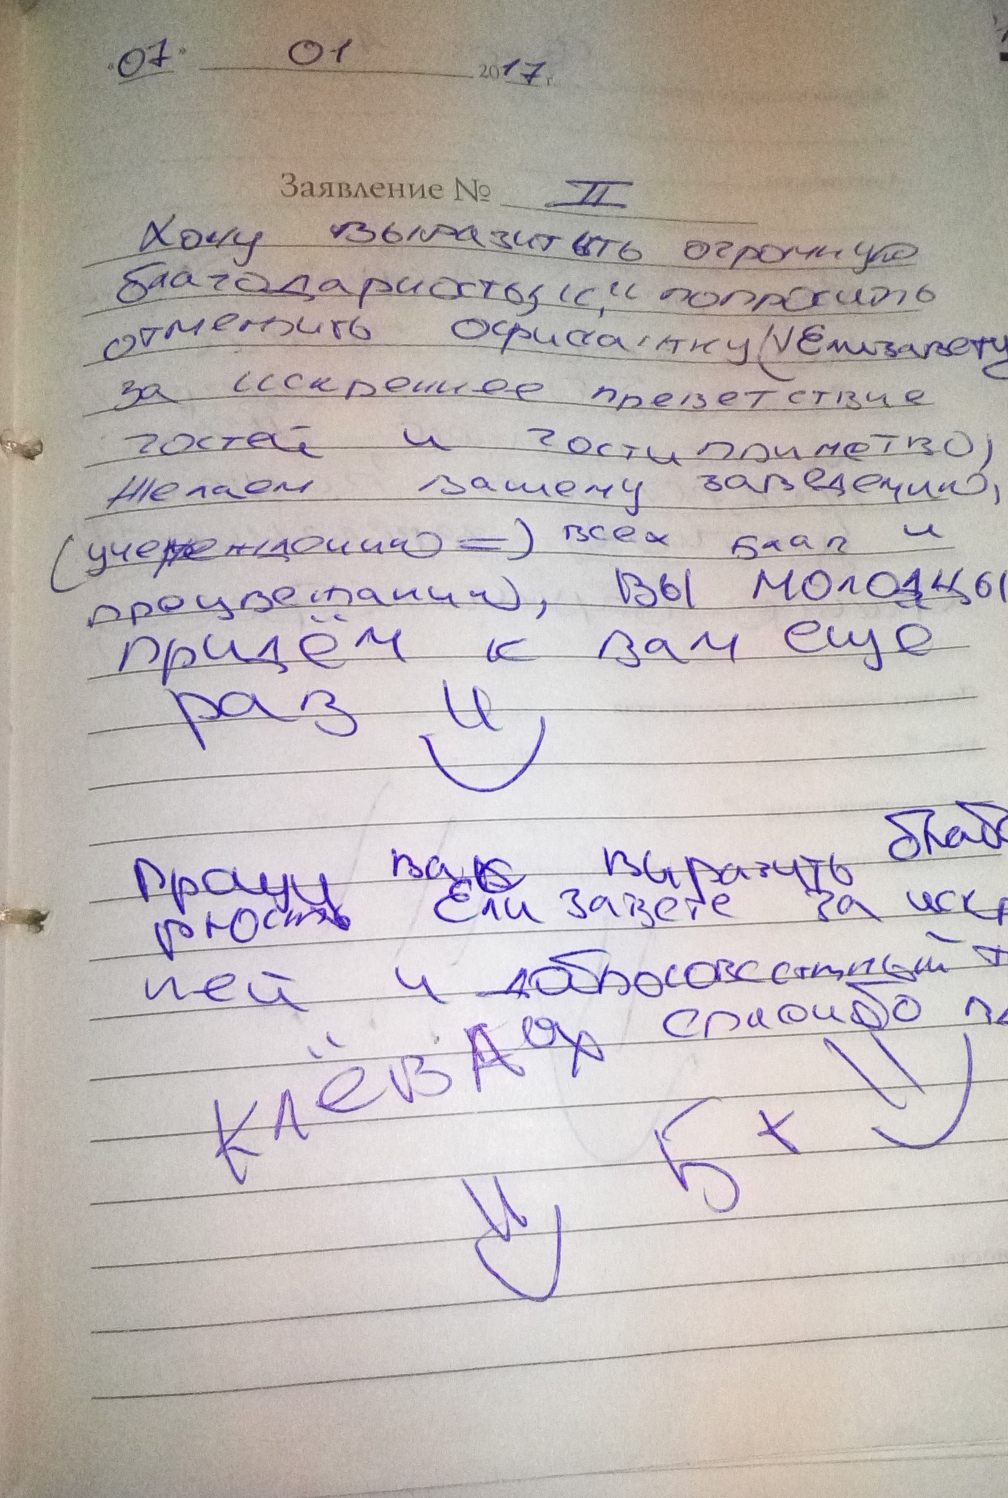 "07" 01 2017 г.
Заявление № II
Хочу выразить огромную
благодарность и попросить
отметить официантку Елизавету
за искреннее преветствие
гостей и гостиприметво,
Желаем вашему заведению,
(учереждению =) всех благ и
процветания), ВЫ МОЛОДЦЫ
придём к вам еще
раз
Прошу вас выразить благо
рность Елизавете за искр
ней и добросовестный
КЛЁВА спасибо
Б х